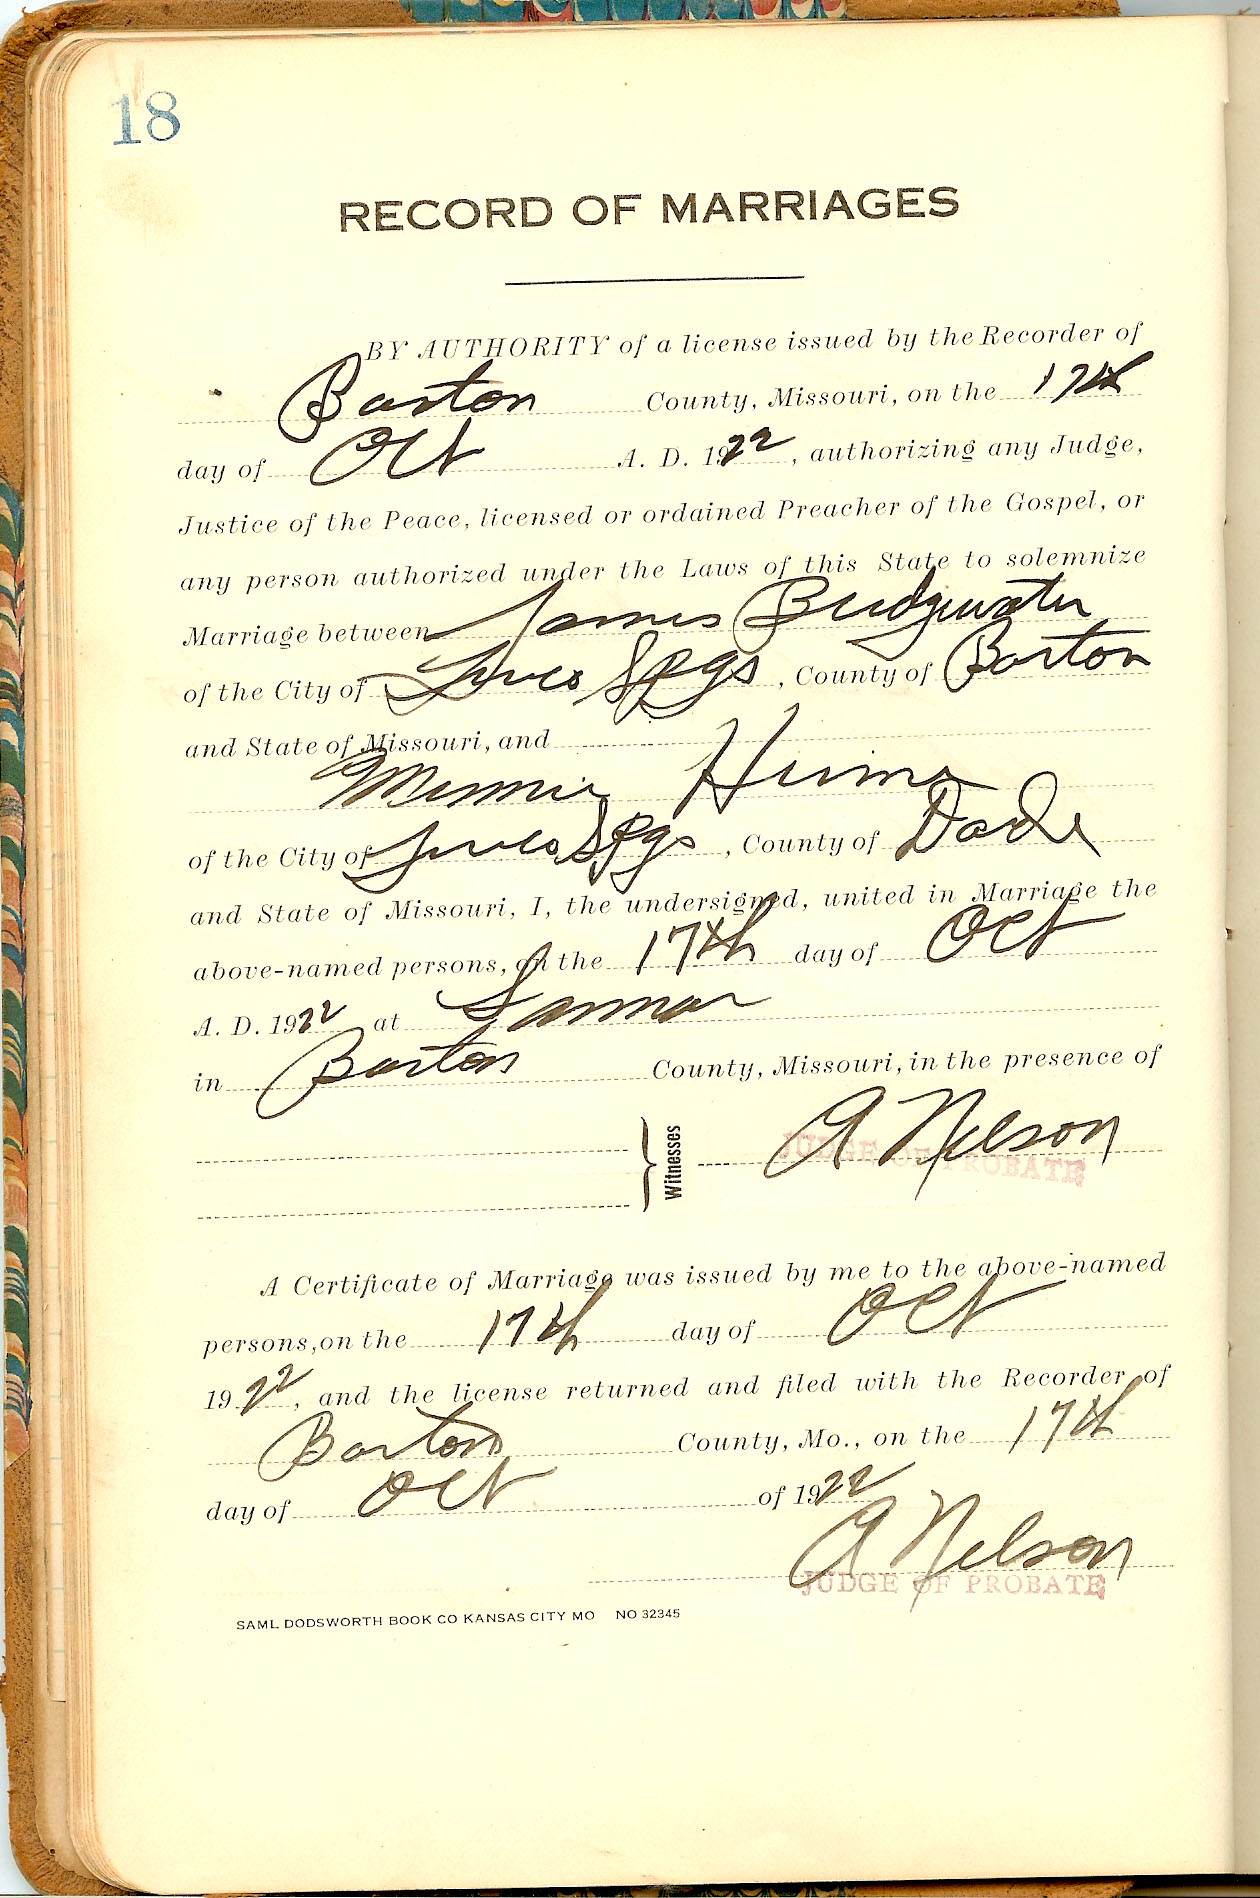 18
RECORD OF MARRIAGES
BY AUTHORITY of a license issued by the Recorder of
Barton County, Missouri, on the 17th
day of Oct A. D. 1922, authorizing any Judge,
Justice of the Peace, licensed or ordained Preacher of the Gospel, or
any person authorized under the Laws of this State to solemnize
Marriage between James Bridgewater
of the City of Spgs, County of Barton
and State of Missouri, and
Minnie
of the City of Spgs, County of Dade
and State of Missouri, I, the undersigned, united in Marriage the
above-named persons, on the 17th day of Oct
A. D. 1922 at Lamar
in Barton County, Missouri, in the presence of
Witnesses A Nelson
JUDGE OF PROBATE
A Certificate of Marriage was issued by me to the above-named
persons, on the 17th day of Oct
1922, and the license returned and filed with the Recorder of
Barton County, Mo., on the 17th
day of Oct of 1922
A Nelson
JUDGE OF PROBATE
SAML DODSWORTH BOOK CO KANSAS CITY MO NO 32345